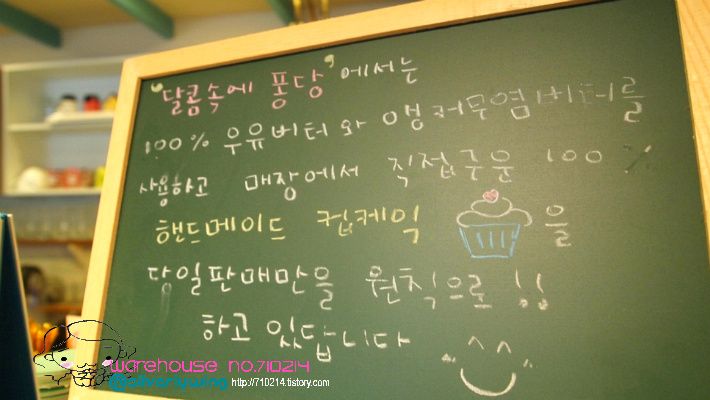 '달콤속에 퐁당'에서는
100% 우유버터와 앵커무염버터를
사용하고 매장에서 직접구운 100%
핸드메이드 컵케익 을
당일판매만을 원칙으로!!
하고있답니다
warehouse no.710214
http://710214.tistory.com